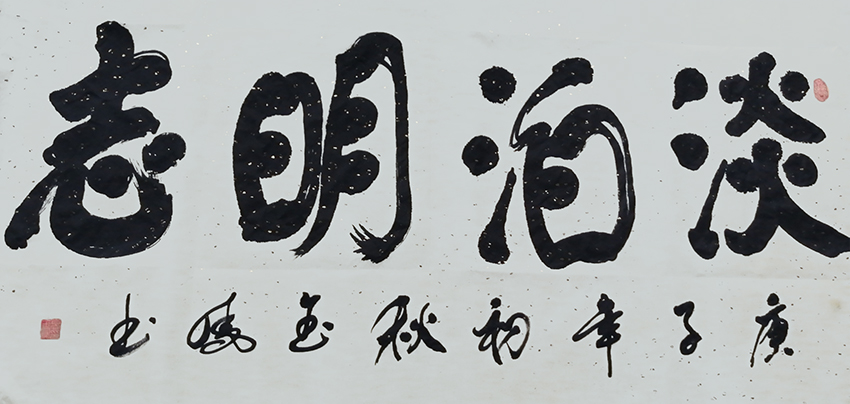 淡泊明志
庚子年初秋
书